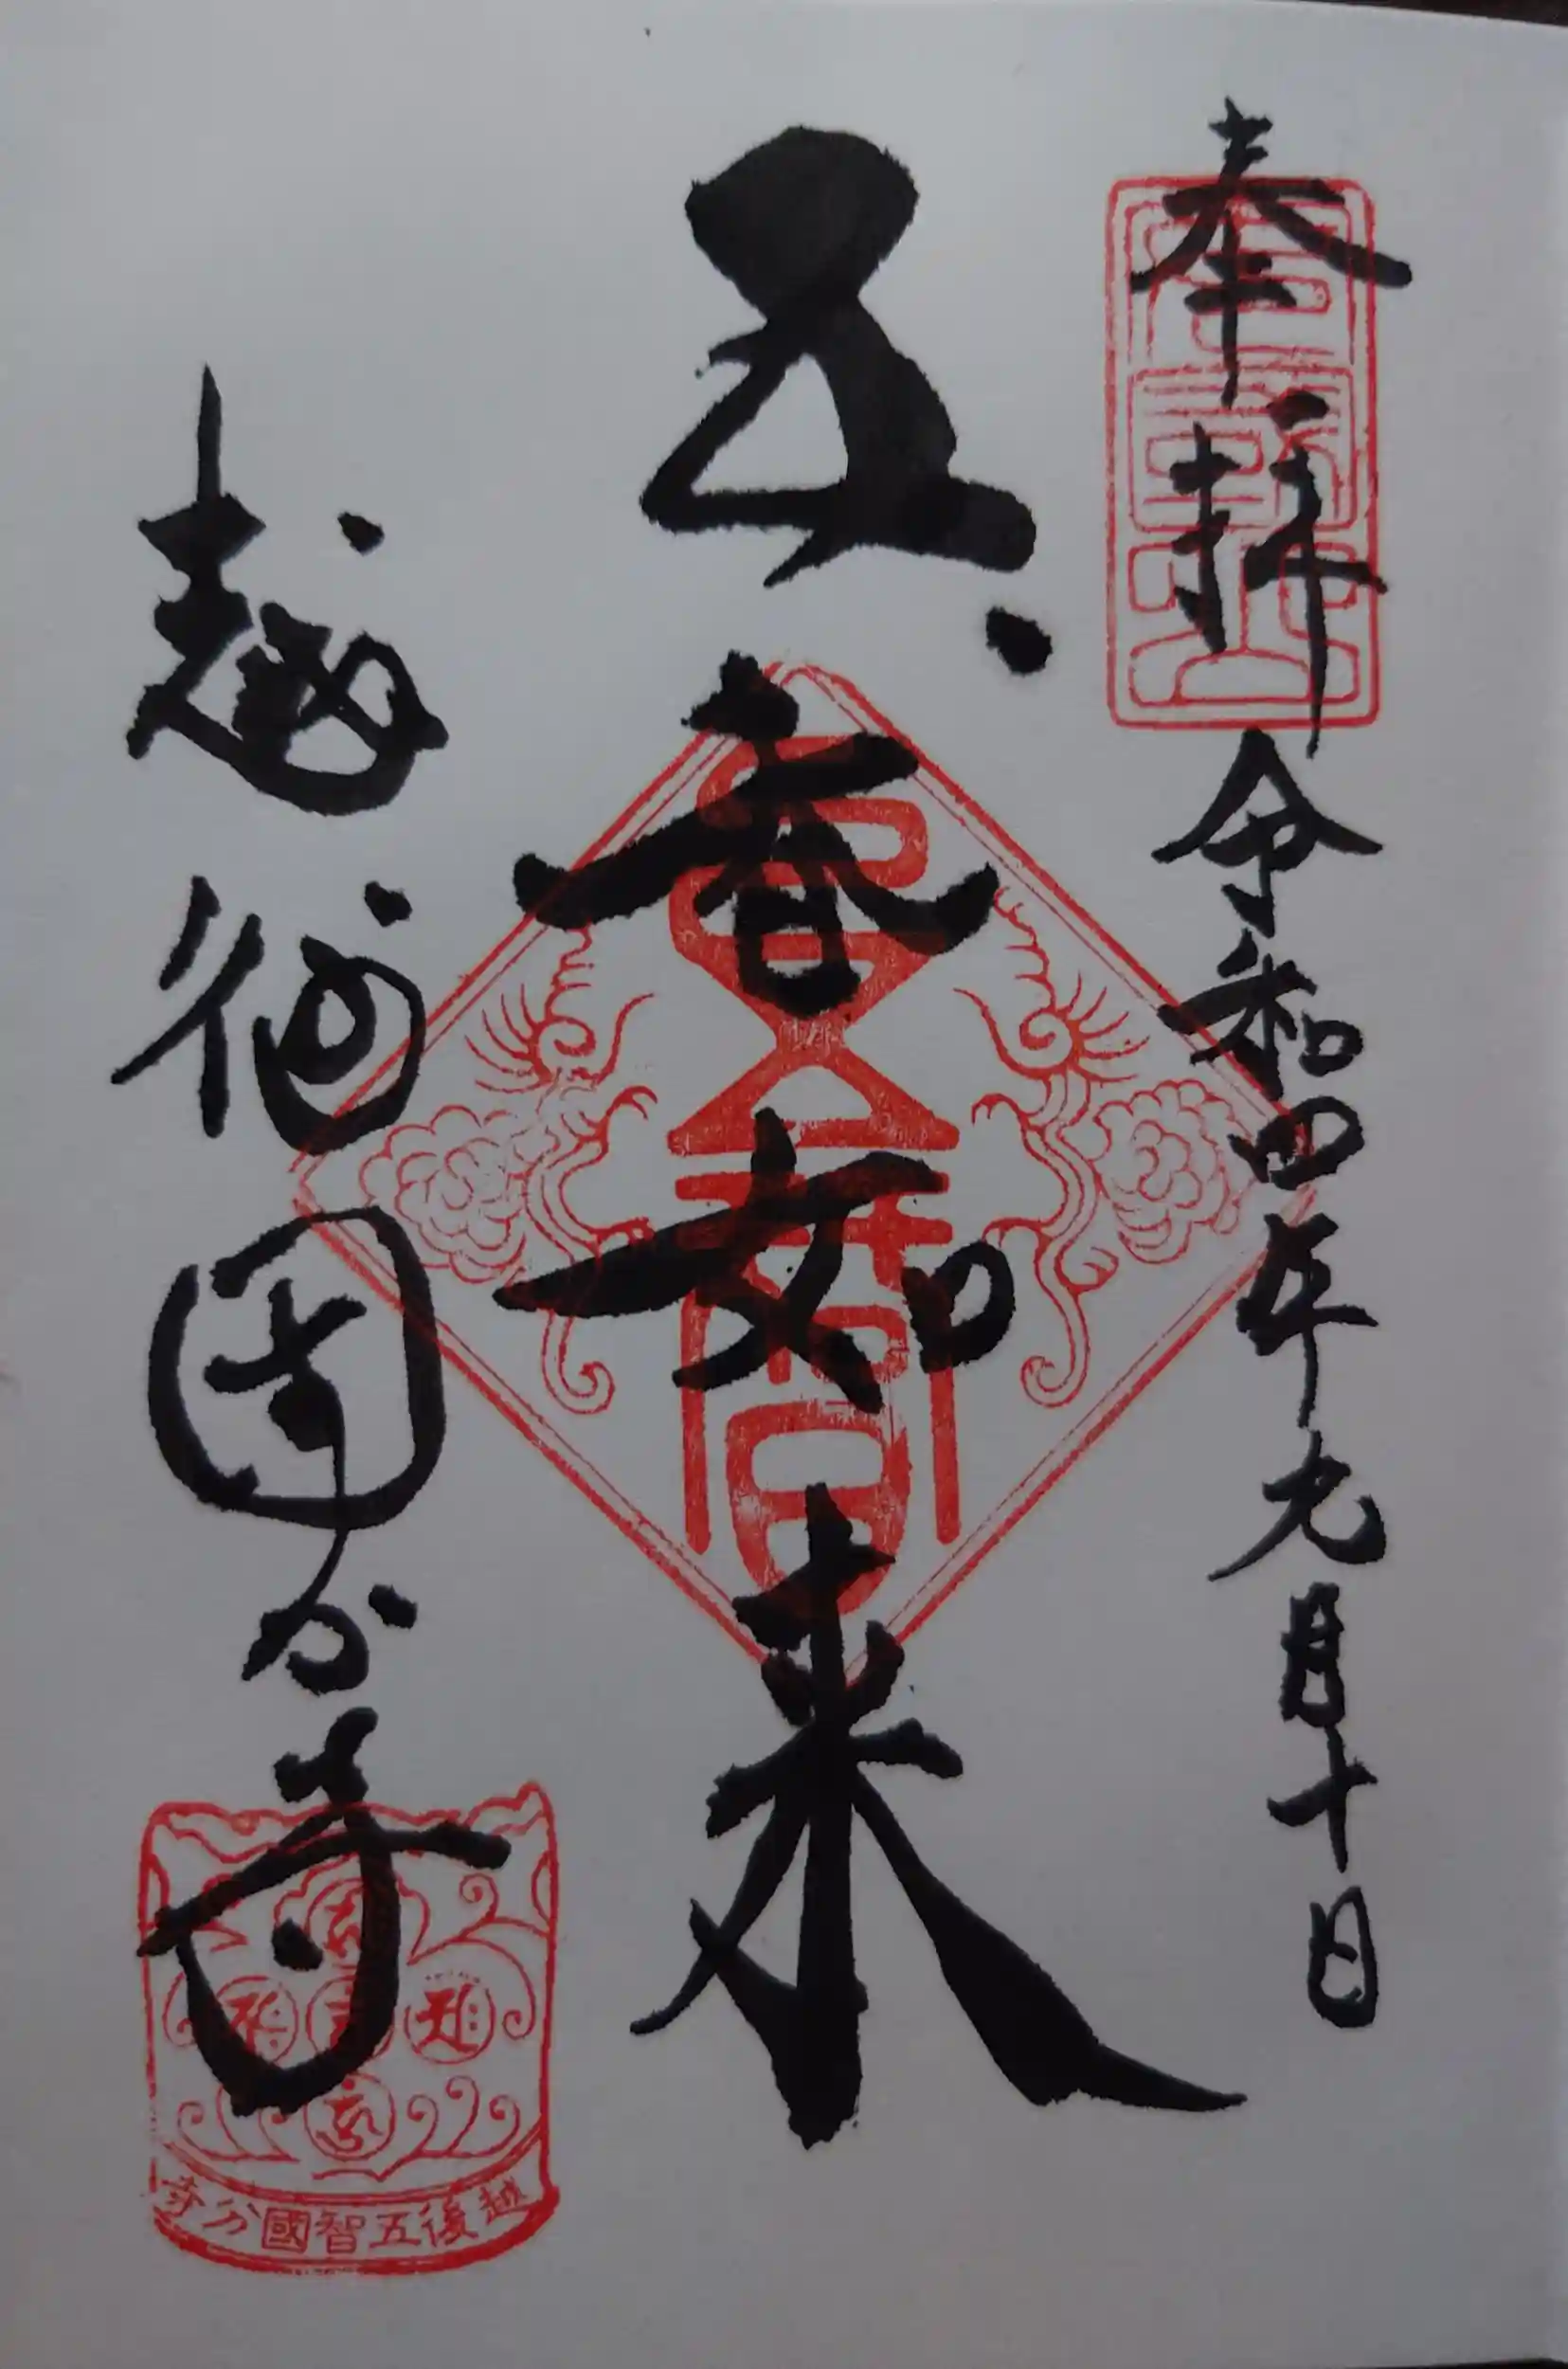 奉拝 令和四年九月十日
五智如来
越後国分寺
越後五智國分寺